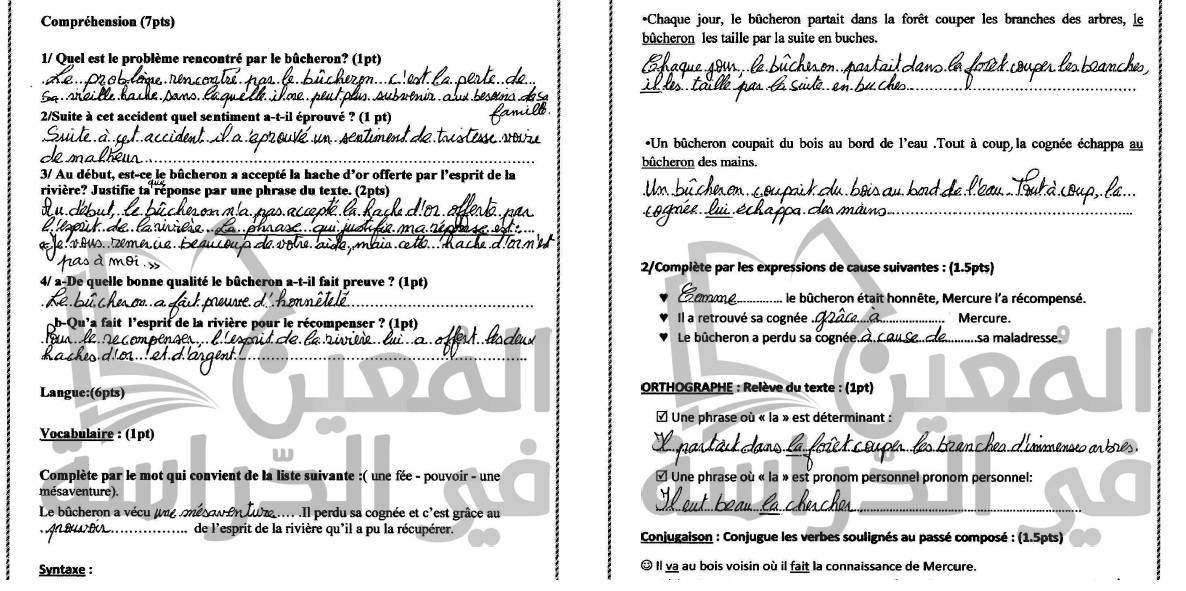 Compréhension (7pts)
1/ Quel est le problème rencontré par le bûcheron? (1pt)
Le problème rencontré par le bûcheron c'est la perte de
sa vieille hache sans laquelle il ne peut plus subvenir aux besoins de sa
famille.
2/Suite à cet accident quel sentiment a-t-il éprouvé ? (1 pt)
Suite à cet accident il a éprouvé un sentiment de tristesse voire
de malheur
3/ Au début, est-ce que le bûcheron a accepté la hache d'or offerte par l'esprit de la
rivière? Justifie ta réponse par une phrase du texte. (2pts)
Au début, le bûcheron n'a pas accepté la hache d'or offerte par
l'esprit de la rivière. La phrase qui justifie ma réponse est:
« Je vous remercie beaucoup de votre aide, mais cette hache d'or n'est
pas à moi. »
4/ a-De quelle bonne qualité le bûcheron a-t-il fait preuve ? (1pt)
Le bûcheron a fait preuve d'honnêteté
b-Qu'a fait l'esprit de la rivière pour le récompenser ? (1pt)
Pour le récompenser, l'esprit de la rivière lui a offert les deux
haches d'or et d'argent!
Langue:(6pts)
Vocabulaire : (1pt)
Complète par le mot qui convient de la liste suivante :( une fée - pouvoir - une
mésaventure).
Le bûcheron a vécu une mésaventure.... .Il perdu sa cognée et c'est grâce au
.pouvoir.................. de l'esprit de la rivière qu'il a pu la récupérer.
Syntaxe :
•Chaque jour, le bûcheron partait dans la forêt couper les branches des arbres, le
bûcheron les taille par la suite en buches.
Chaque jour, le bûcheron partait dans la forêt couper les branches,
il les taille par la suite en buches
•Un bûcheron coupait du bois au bord de l'eau .Tout à coup, la cognée échappa au
bûcheron des mains.
Un bûcheron coupait du bois au bord de l'eau. Tout à coup, la
cognée lui échappa des mains
2/Complète par les expressions de cause suivantes : (1.5pts)
♥ Comme.............. le bûcheron était honnête, Mercure l'a récompensé.
♥ Il a retrouvé sa cognée .grâce à.................. Mercure.
♥ Le bûcheron a perdu sa cognée à cause de.........sa maladresse.
ORTHOGRAPHE : Relève du texte : (1pt)
☑ Une phrase où « la » est déterminant :
Il partait dans la forêt couper les branches d'immenses arbres.
☑ Une phrase où « la » est pronom personnel pronom personnel:
Il eut beau la chercher
Conjugaison : Conjugue les verbes soulignés au passé composé : (1.5pts)
☺ Il va au bois voisin où il fait la connaissance de Mercure.
المُعين
في الدِّراسة
المُعين
في الدِّراسة